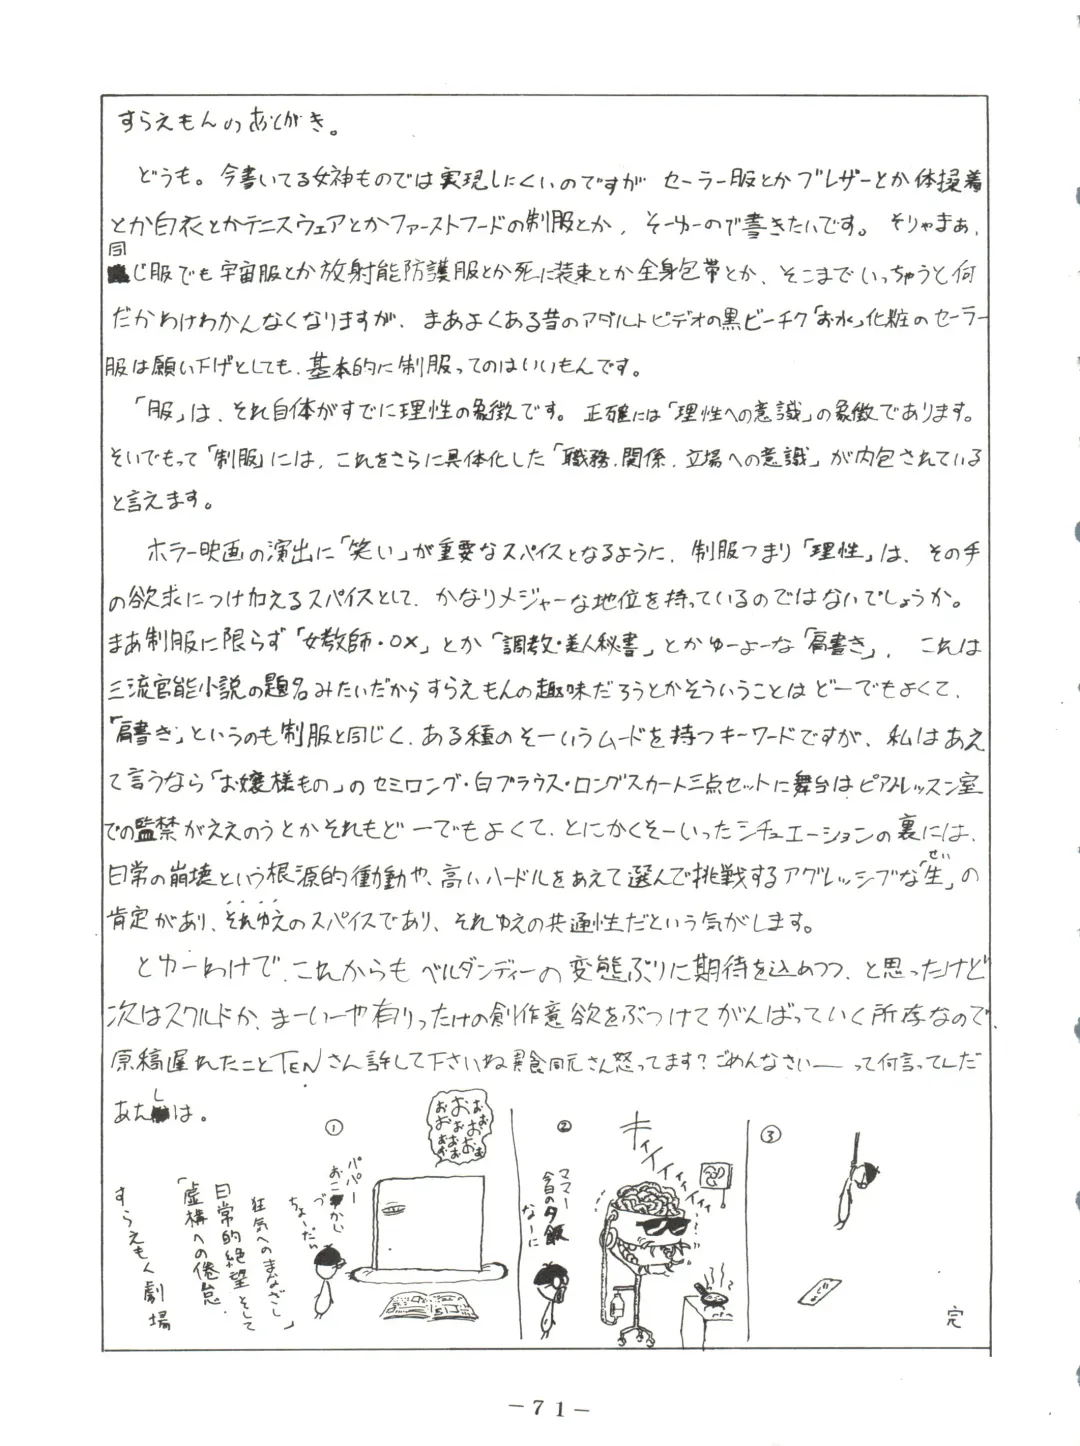 すらえもんのあとがき。
どうも。今書いてる女神ものでは実現しにくいのですが セーラー服とかブレザーとか体操着
とか白衣とかテニスウェアとかファーストフードの制服とか、そーゆーので書きたいです。そりゃまぁ、
同じ服でも宇宙服とか放射能防護服とか死に装束とか全身包帯とか、そこまでいっちゃうと何
だかわけわかんなくなりますが、まあよくある昔のアダルトビデオの黒ビーチク「お水」化粧のセーラー
服は願い下げとしても、基本的に制服ってのはいいもんです。
「服」は、それ自体がすでに理性の象徴です。正確には「理性への意識」の象徴であります。
そいでもって「制服」には、これをさらに具体化した「職務、関係、立場への意識」が内包されている
と言えます。
ホラー映画の演出に「笑い」が重要なスパイスとなるように、制服つまり「理性」は、その手
の欲求につけ加えるスパイスとして、かなりメジャーな地位を持っているのではないでしょうか。
まあ制服に限らず「女教師・○×」とか「調教・美人秘書」とかゆーよーな「肩書き」、これは
三流官能小説の題名みたいだからすらえもんの趣味だろうとかそういうことはどーでもよくて、
「肩書き」というのも制服と同じく、ある種のそーいうムードを持つキーワードですが、私はあえ
て言うなら「お嬢様もの」のセミロング・白ブラウス・ロングスカート三点セットに舞台はピアノレッスン室
での監禁がええのうとかそれもどーでもよくて、とにかくそーいったシチュエーションの裏には、
日常の崩壊という根源的衝動や、高いハードルをあえて選んで挑戦するアグレッシブな「生」の
せい
肯定があり、それゆえのスパイスであり、それゆえの共通性だという気がします。
とゆーわけで、これからもベルダンディーの変態ぶりに期待を込めつつ、と思ったけど
次はスクルドか、まーいーや有りったけの創作意欲をぶつけてがんばっていく所存なので、
原稿遅れたことTENさん許して下さいね 異食同元さん怒ってます?ごめんなさいー って何言ってんだ
あたしは。
すらえもん劇場
「虚構への倦怠、
日常的絶望そして
狂気へのまなざし」
①
パパー
おこづかい
ちょーだい
おおおおおおおおおおお
②
ママー
今日の夕飯
なーに
キィイイイイイイイ
③
完
-71-